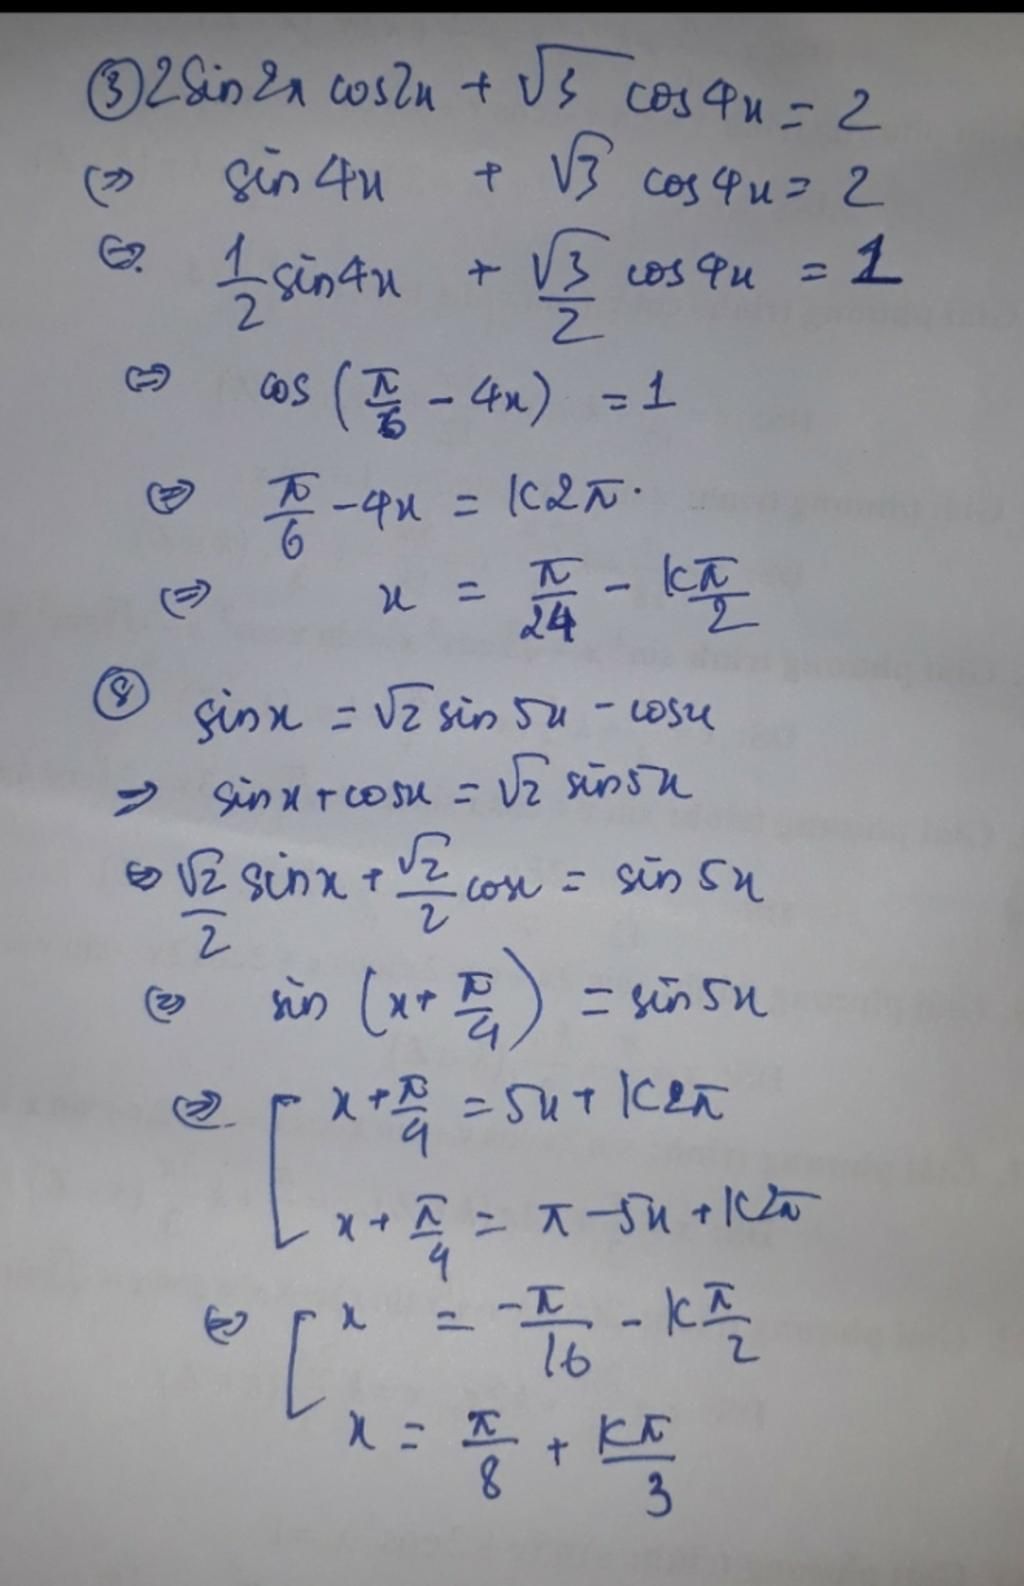 ③ 2sin2x cos2x + √3 cos4x = 2
⇔ sin4x + √3 cos4x = 2
⇔ 1/2 sin4x + √3/2 cos4x = 1
⇔ cos (π/6 - 4x) = 1
⇔ π/6 - 4x = k2π.
⇔ x = π/24 - kπ/2
⑧ sinx = √2 sin5x - cosx
⇒ sinx + cosx = √2 sin5x
⇔ √2/2 sinx + √2/2 cosx = sin5x
⇔ sin (x + π/4) = sin5x
⇔ [ x + π/4 = 5x + k2π
x + π/4 = π - 5x + k2π
⇔ [ x = -π/16 - kπ/2
x = π/8 + kπ/3